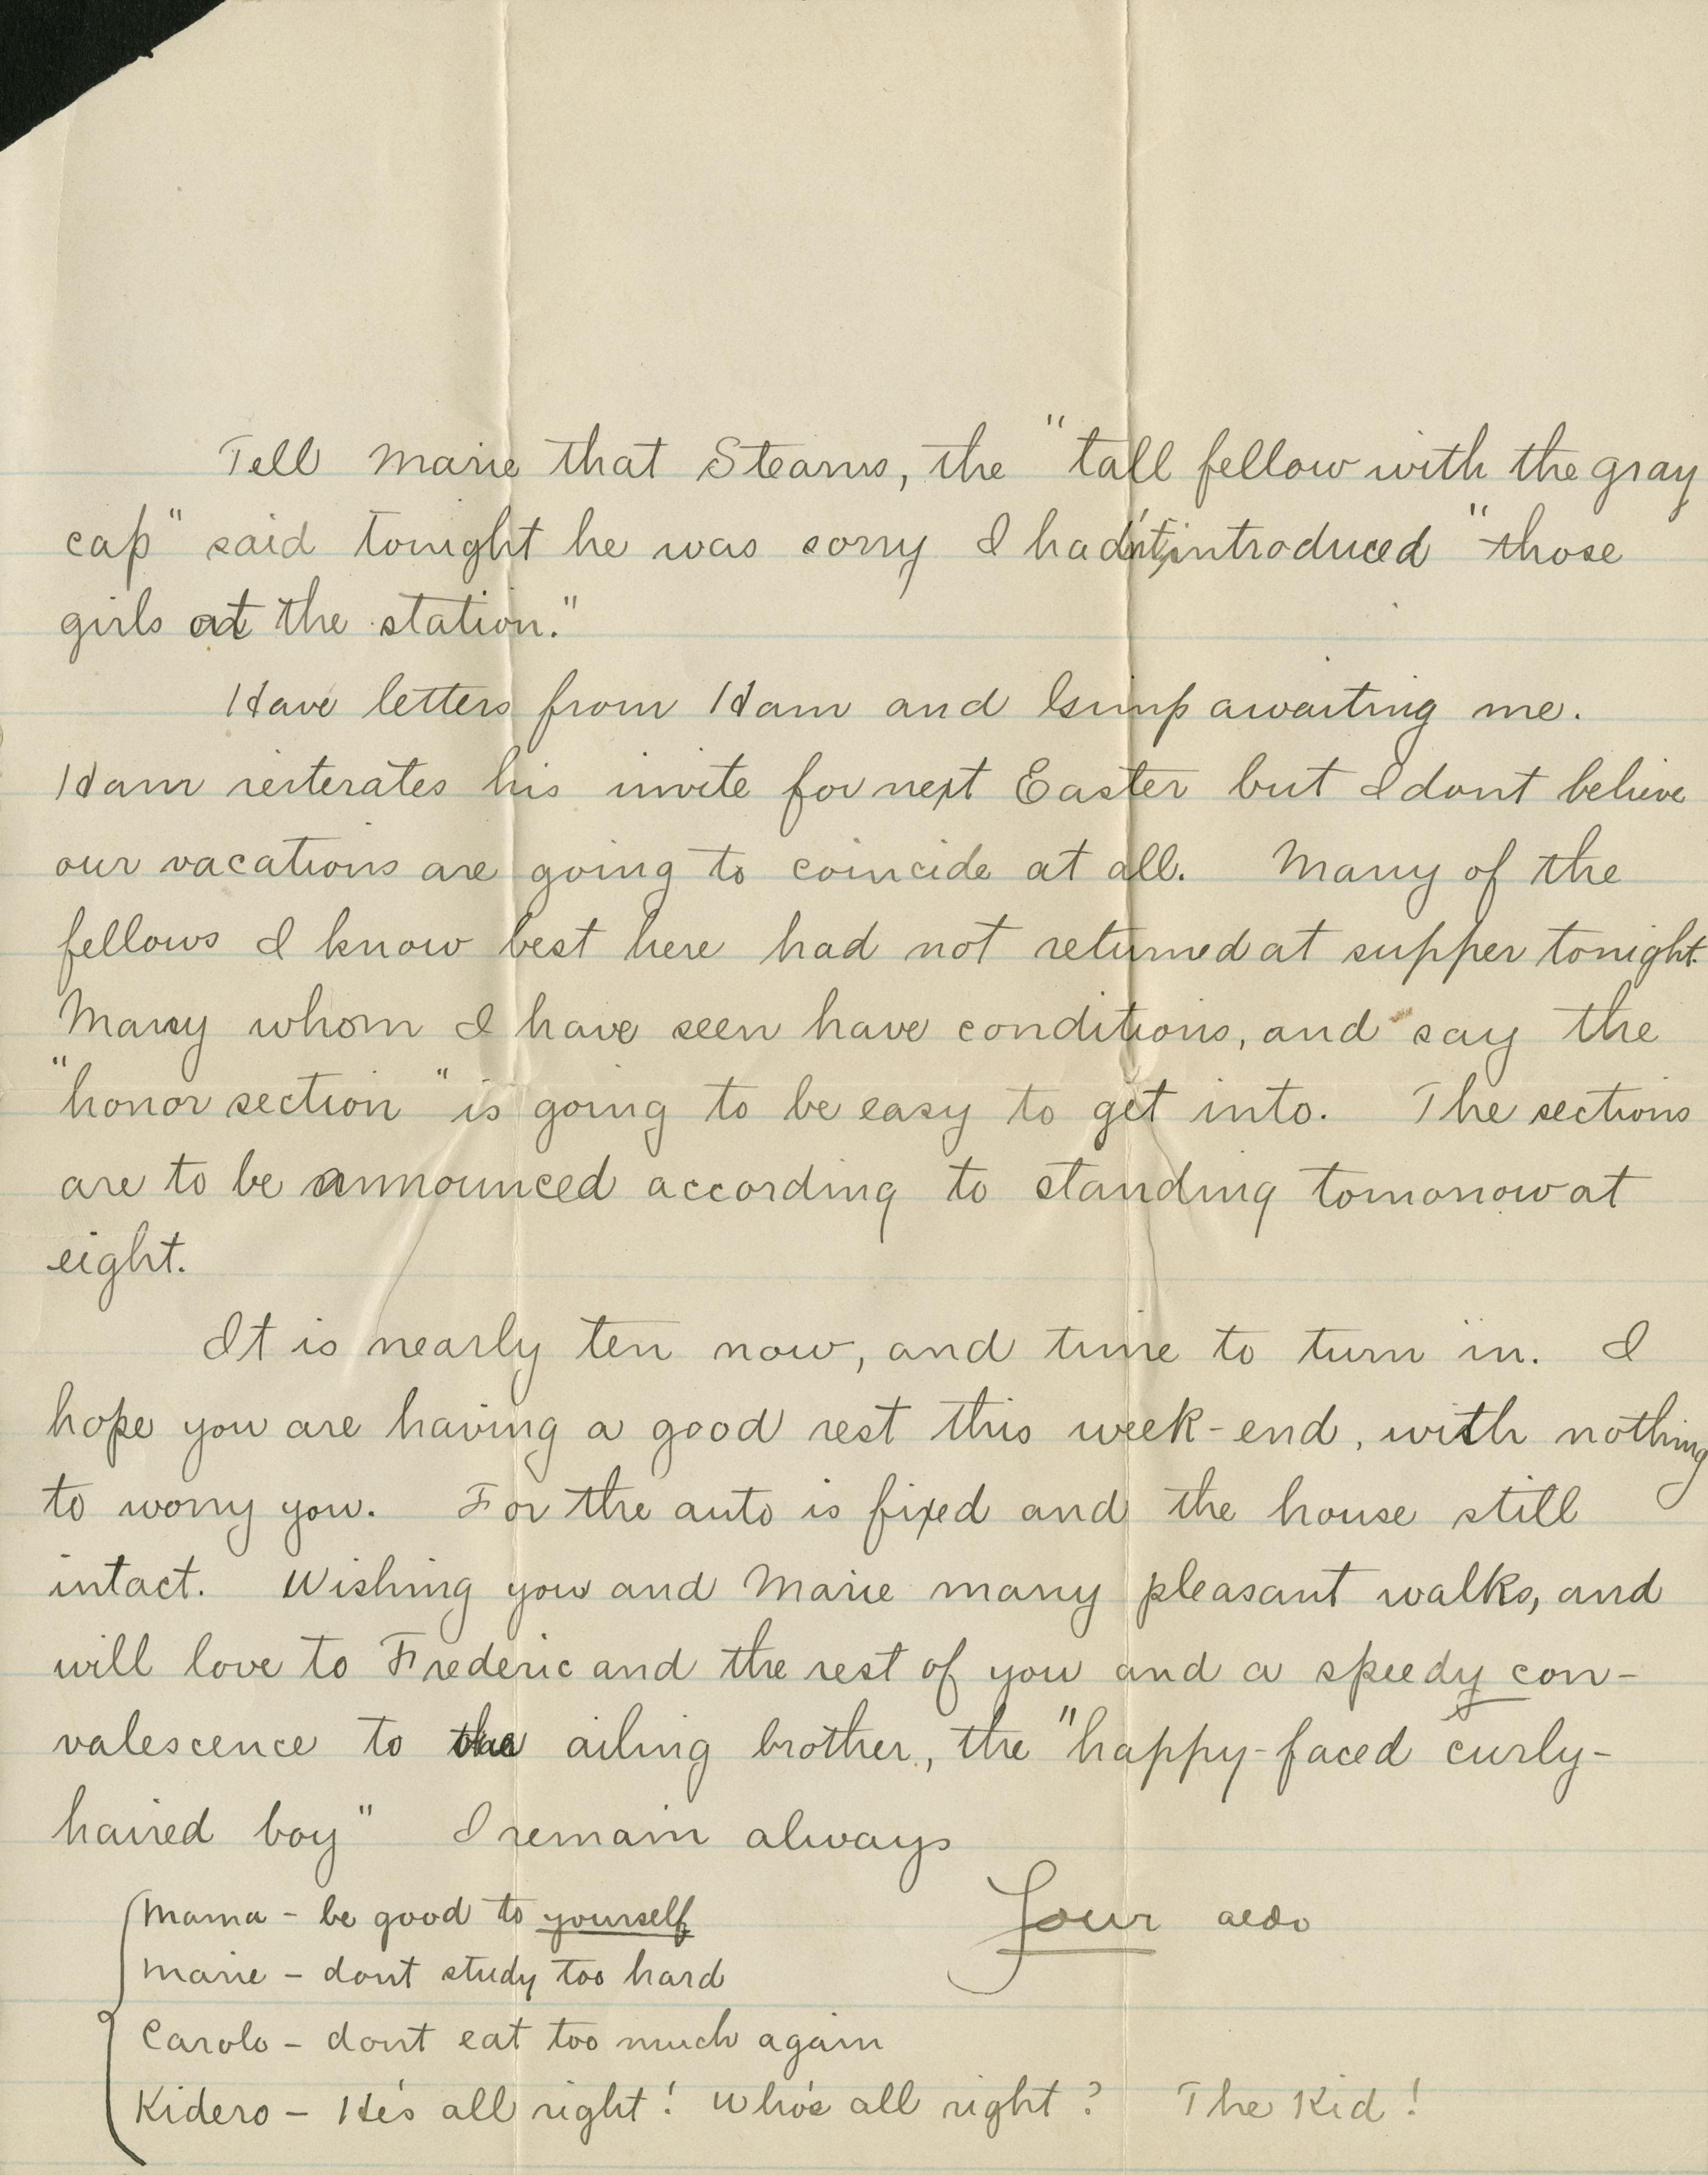 Tell Marie that Stearns, the "tall fellow with the gray
cap" said tonight he was sorry I hadn't introduced "those
girls at the station."
Have letters from Ham and Gimp awaiting me.
Ham reiterates his invite for next Easter but I dont believe
our vacations are going to coincide at all. Many of the
fellows I know best here had not returned at supper tonight.
Many whom I have seen have conditions, and say the
"honor section" is going to be easy to get into. The sections
are to be announced according to standing tomorrow at
eight.
It is nearly ten now, and time to turn in. I
hope you are having a good rest this week-end, with nothing
to worry you. For the auto is fixed and the house still
intact. Wishing you and Marie many pleasant walks, and
will love to Frederic and the rest of you and a speedy con-
valescence to the ailing brother, the "happy-faced curly-
haired boy" I remain always
Your aldo
Mama - be good to yourself
Marie - dont study too hard
Carolo - dont eat too much again
Kidero - He's all right! Who's all right? The Kid!